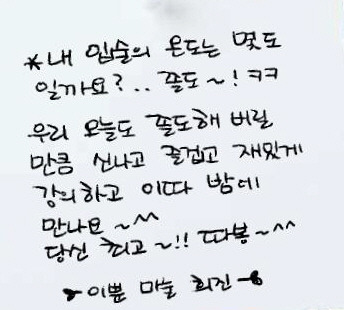 *내 입술의 온도는 몇도
일까요?.. 쫄도~! ㅋㅋ
우리 오늘도 쫄도해 버릴
만큼 신나고 즐겁고 재밌게
강의하고 이따 밤에
만나요~^^
당신 최고~!! 따봉~^^
이쁜 마눌 희진